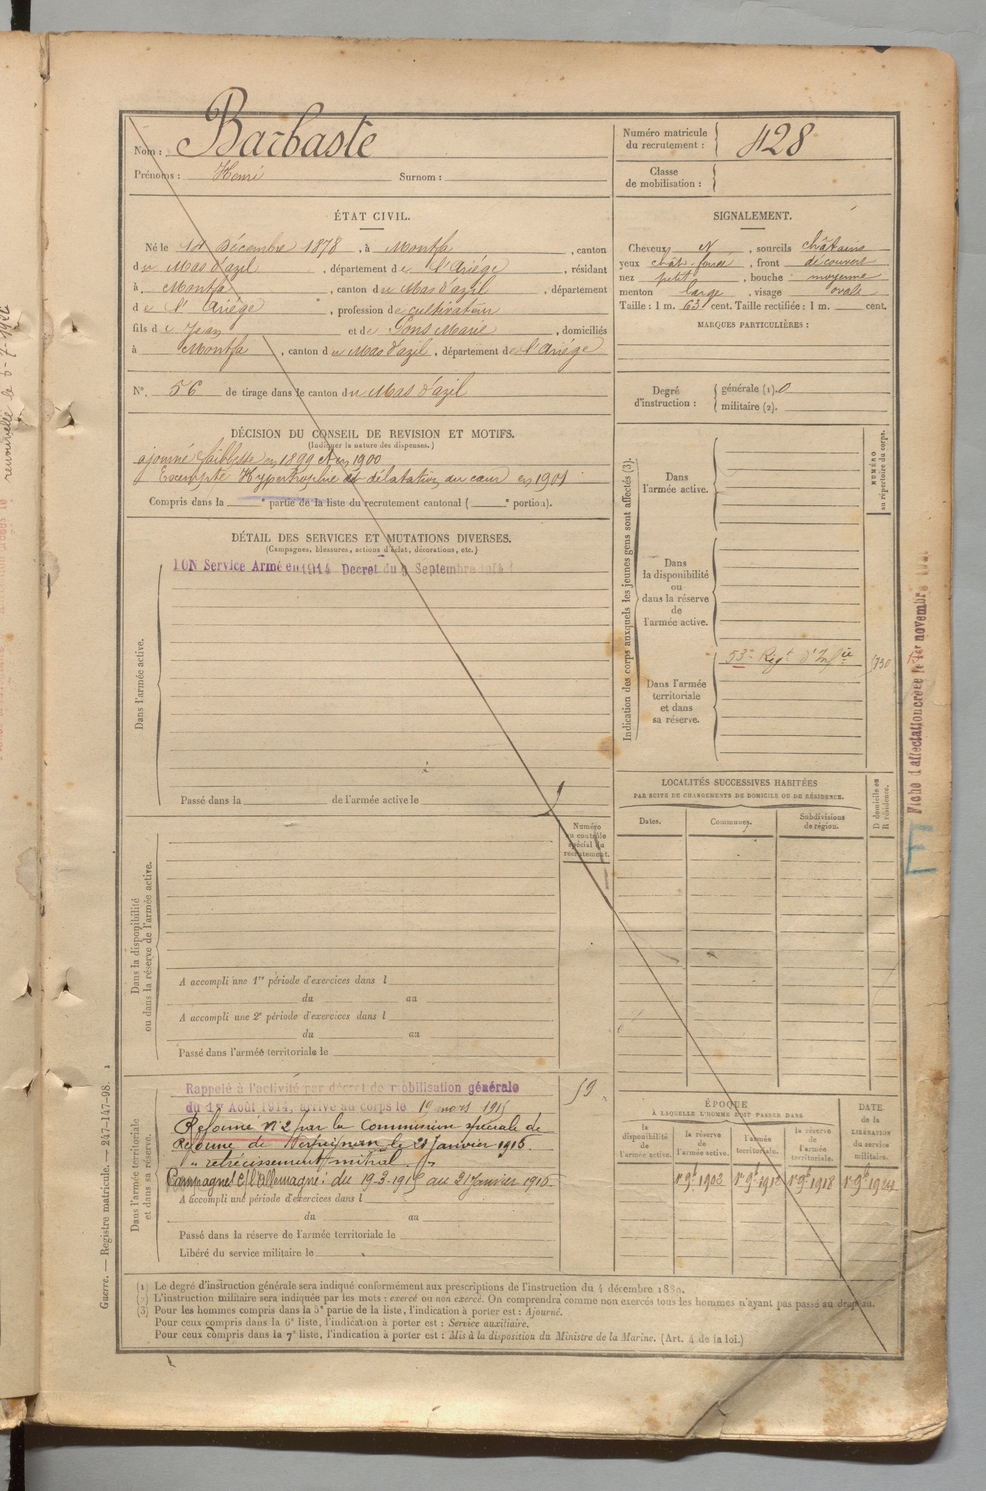 Nom : Barbaste
Prénoms : Henri Surnom :
Numéro matricule du recrutement : 428
Classe de mobilisation :
ÉTAT CIVIL.
Né le Décembre 1878, à Montfa, canton
du Mas d'azil, département de l'Ariége, résidant
à Montfa, canton du Mas d'azil, département
de l'Ariége, profession de cultivateur
fils de Jean et de Pons Marie, domiciliés
à Montfa, canton du Mas d'azil, département de l'Ariége
N°. 56 de tirage dans le canton du Mas d'azil
SIGNALEMENT.
Cheveux N, sourcils châtains
yeux chât. foncé, front découvert
nez petit, bouche moyenne
menton large, visage ovale
Taille : 1 m. 63 cent. Taille rectifiée : 1 m. cent.
MARQUES PARTICULIÈRES :
Degré d'instruction :
générale (1). 0
militaire (2).
DÉCISION DU CONSEIL DE REVISION ET MOTIFS.
(Indiquer la nature des dispenses.)
ajourné faiblesse en 1899 et en 1900
Exempté Hypertrophie et délatation du cœur en 1901
Compris dans la e partie de la liste du recrutement cantonal ( e portion).
DÉTAIL DES SERVICES ET MUTATIONS DIVERSES.
(Campagnes, blessures, actions d'éclat, décorations, etc.)
ION Service Armé en 1914 Decret du 9 Septembre 1914
Dans l'armée active.
Passé dans la de l'armée active le
Numéro au contrôle spécial du recrutement.
Dans la disponibilité ou dans la réserve de l'armée active.
A accompli une 1re période d'exercices dans l
du au
A accompli une 2e période d'exercices dans l
du au
Passé dans l'armée territoriale le
Dans l'armée territoriale et dans sa réserve.
Rappelé à l'activité par décret de mobilisation générale
du 1er Août 1914, arrivé au corps le 19 mars 1915
Réformé n°2 par la Commission spéciale de
Réforme de Perpignan le 21 Janvier 1916
"retrécissement mitral"
Campagne c/ l'Allemagne : du 19-3-1915 au 21 Janvier 1916
A accompli une période d'exercices dans l
du au
Passé dans la réserve de l'armée territoriale le
Libéré du service militaire le
59
Indication des corps auxquels les jeunes gens sont affectés (3).
Dans l'armée active.
Dans la disponibilité ou dans la réserve de l'armée active.
Dans l'armée territoriale et dans sa réserve.
53e Regt d'Infie
NUMÉRO au répertoire du corps.
LOCALITÉS SUCCESSIVES HABITÉES
PAR SUITE DE CHANGEMENTS DE DOMICILE OU DE RÉSIDENCE.
Dates. Communes. Subdivisions de région. D domicile ou R résidence.
ÉPOQUE
À LAQUELLE L'HOMME DOIT PASSER DANS
la disponibilité de l'armée active.
la réserve de l'armée active.
l'armée territoriale.
la réserve de l'armée territoriale.
DATE de la LIBÉRATION du service militaire.
1er 9bre 1902 1er 9bre 1912 1er 9bre 1918 1er 9bre 1924
(1) Le degré d'instruction générale sera indiqué conformément aux prescriptions de l'instruction du 4 décembre 1889.
(2) L'instruction militaire sera indiquée par les mots : exercé ou non exercé. On comprendra comme non exercés tous les hommes n'ayant pas passé au drapeau.
(3) Pour les hommes compris dans la 5e partie de la liste, l'indication à porter est : Ajourné.
Pour ceux compris dans la 6e liste, l'indication à porter est : Service auxiliaire.
Pour ceux compris dans la 7e liste, l'indication à porter est : Mis à la disposition du Ministre de la Marine. (Art. 4 de la loi.)
Guerre. — Registre matricule. — 247-147-98.
Fiche d'affectation créée le 1er novembre